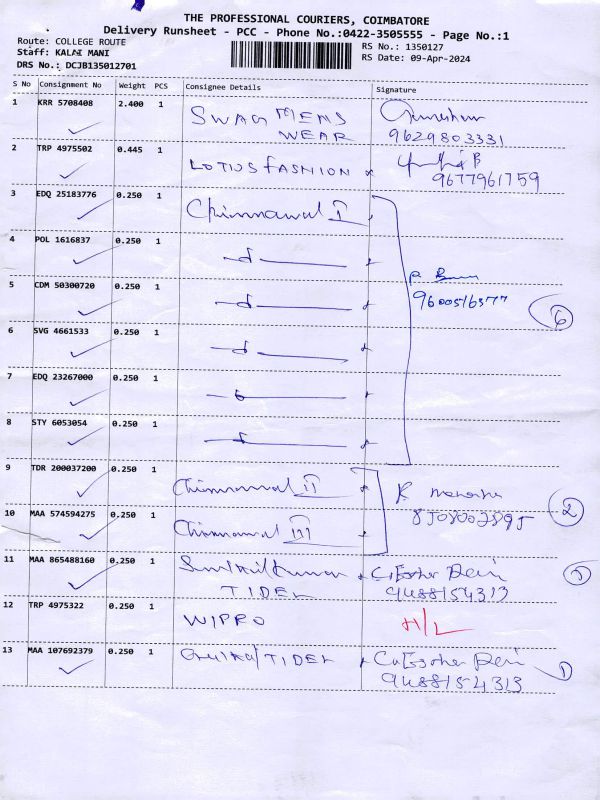 THE PROFESSIONAL COURIERS, COIMBATORE
Delivery Runsheet - PCC - Phone No.:0422-3505555 - Page No.:1
Route: COLLEGE ROUTE
RS No.: 1350127
Staff: KALAI MANI
RS Date: 09-Apr-2024
DRS No.: DCJB135012701
S No Consignment No Weight PCS Consignee Details Signature
1 KRR 5708408 2.400 1 SWAG MENS
WEAR 9629803331
2 TRP 4975502 0.445 1 LOTUS FASHION
9677961759
3 EDQ 25183776 0.250 1 Chinnawal I
4 POL 1616837 0.250 1
5 CDM 50300720 0.250 1 9600516577 6
6 SVG 4661533 0.250 1
7 EDQ 23267000 0.250 1
8 STY 6053054 0.250 1
9 TDR 200037200 0.250 1 Chinnawal II
10 MAA 574594275 0.250 1 Chinnawal III 2
11 MAA 865488160 0.250 1
TIDEL 9488154313
12 TRP 4975322 0.250 1 WIPRO H/L
13 MAA 107692379 0.250 1 /TIDEL 1
9488154313